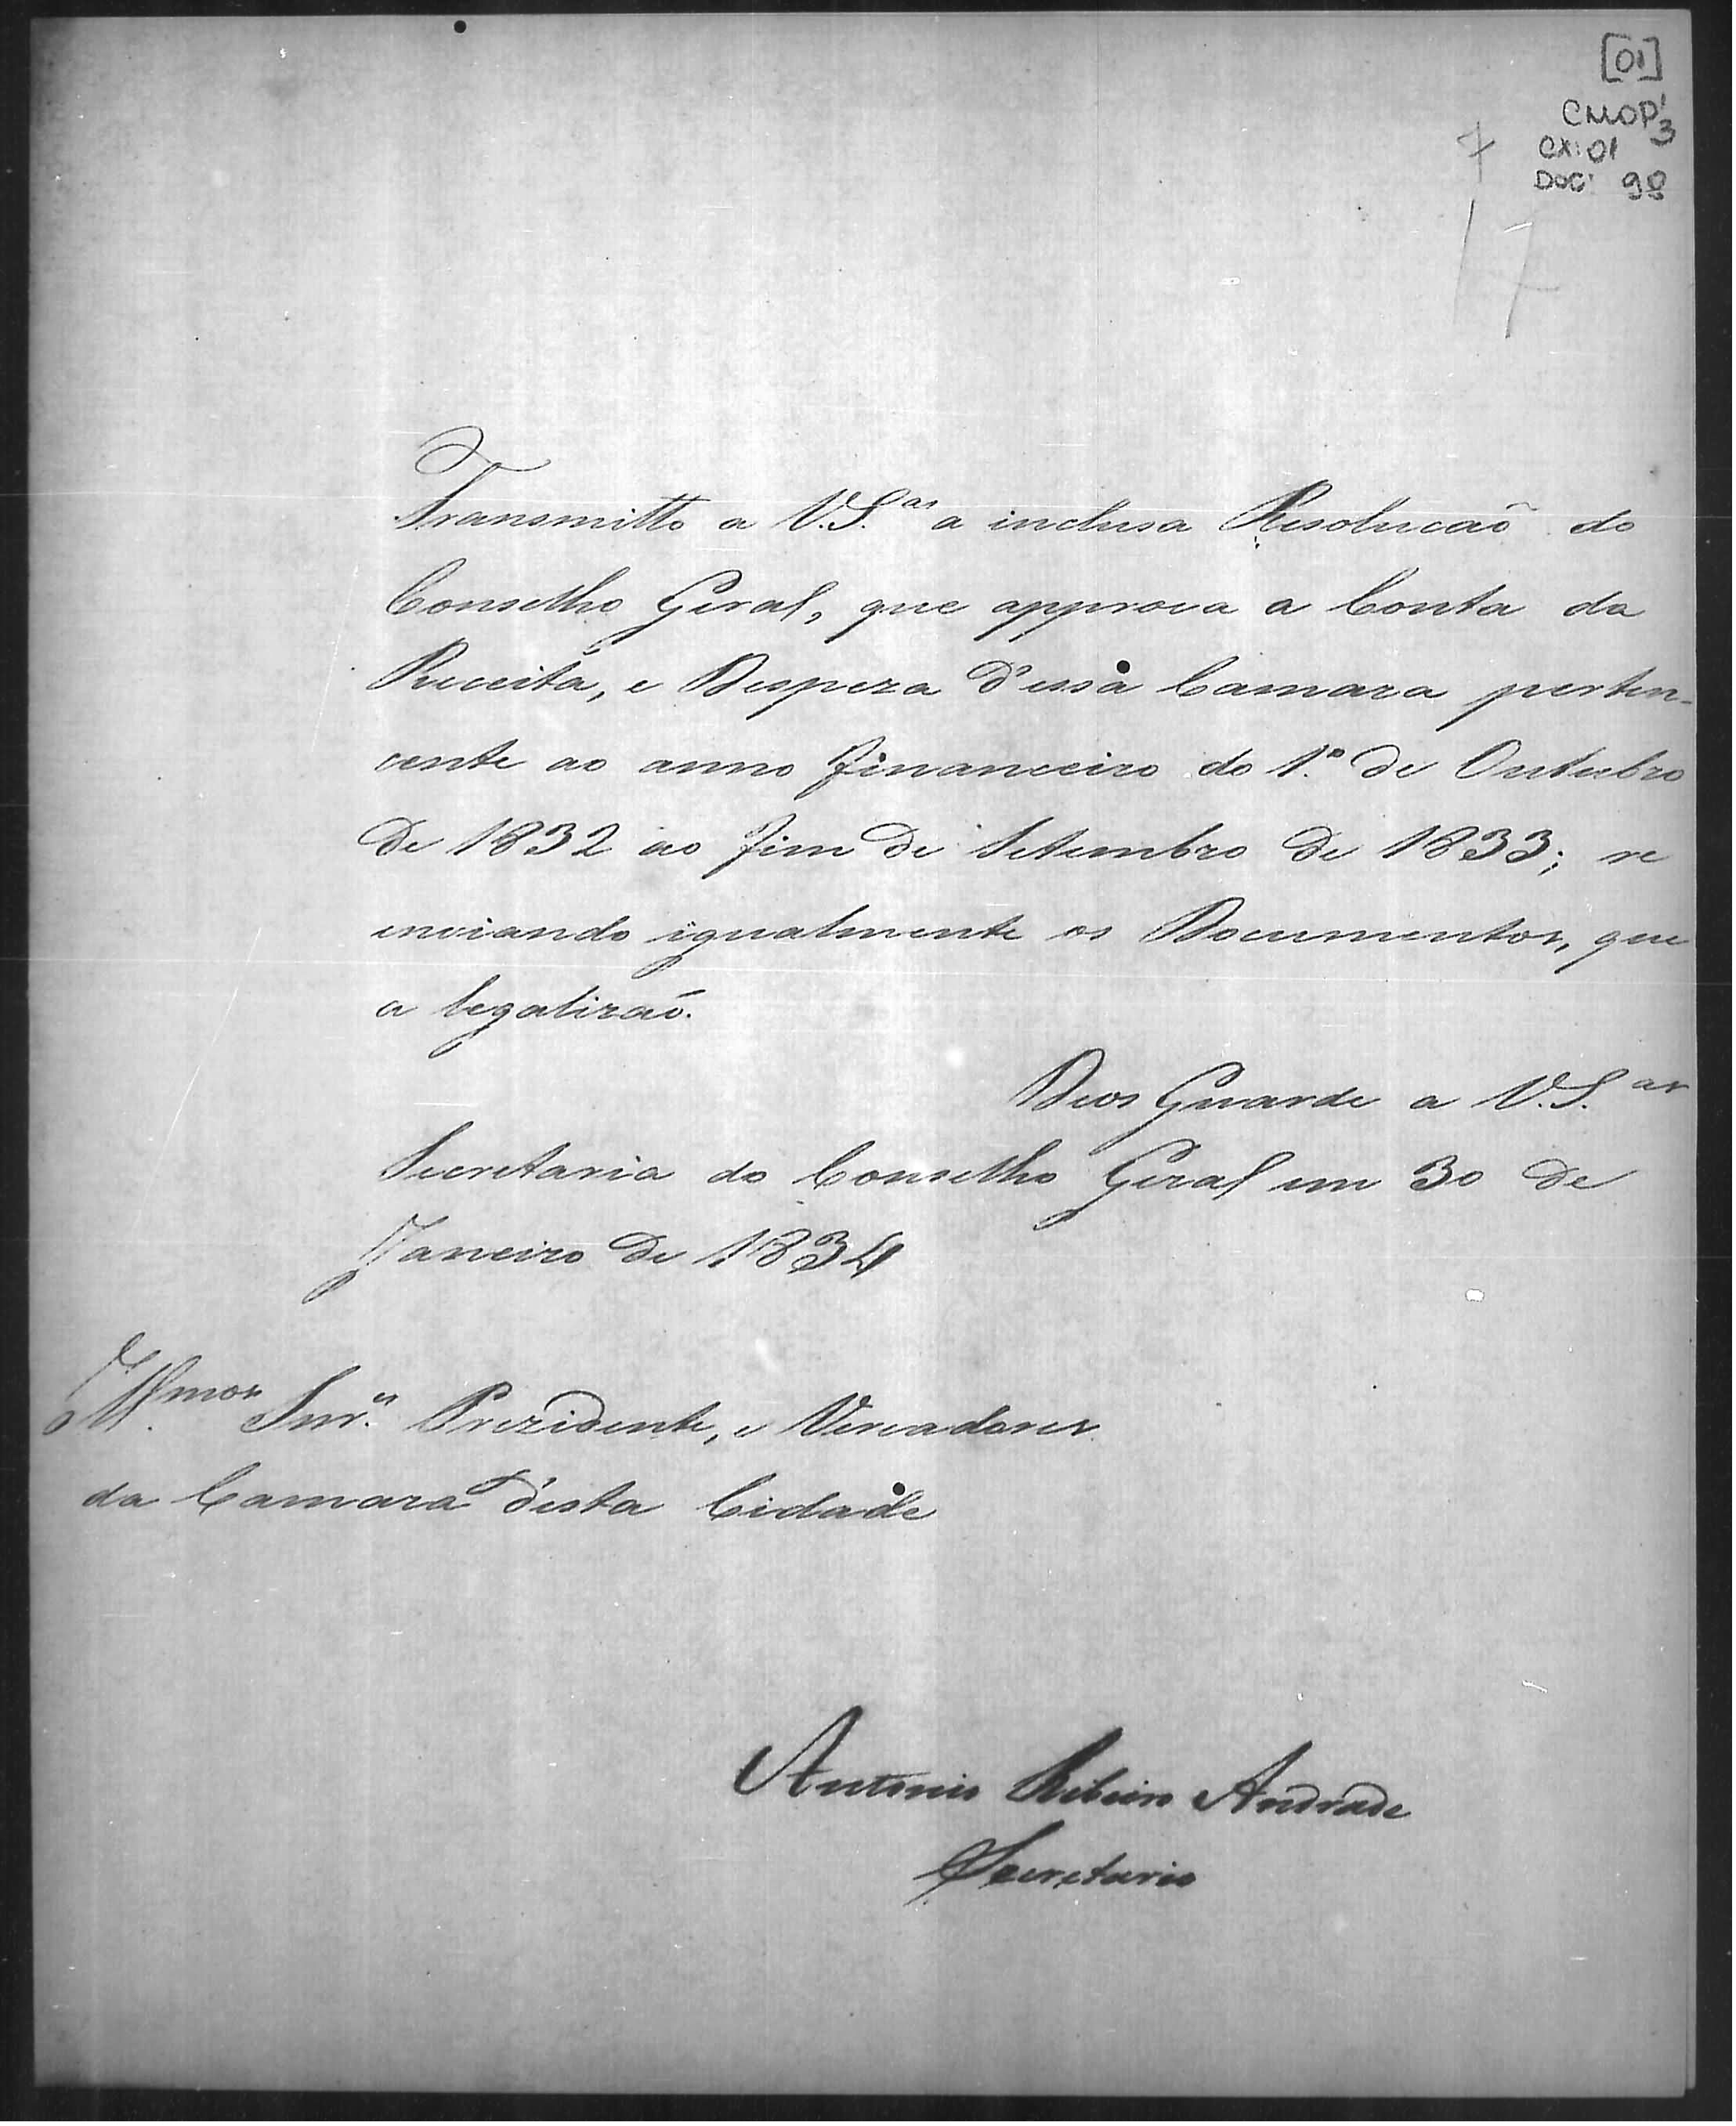 [01]
CMOP 1/3
CX: 01
DOC: 98
7
17
Transmitto a V.S.as a inclusa Resolucaõ do
Conselho Geral, que approva a Conta da
Receita, e Despeza d'essa Camara perten-
cente ao anno financeiro do 1.º de Outubro
de 1832 ao fim de Setembro de 1833; re
enviando igualmente os Documentos, que
a legalizaõ.
Deos Guarde a V.S.as
Secretaria do Conselho Geral em 30 de
Janeiro de 1834
Illmos. Snr.es Prezidente, e Vereadores
da Camara d'esta Cidade
Antonio Ribeiro Andrade
Secretario